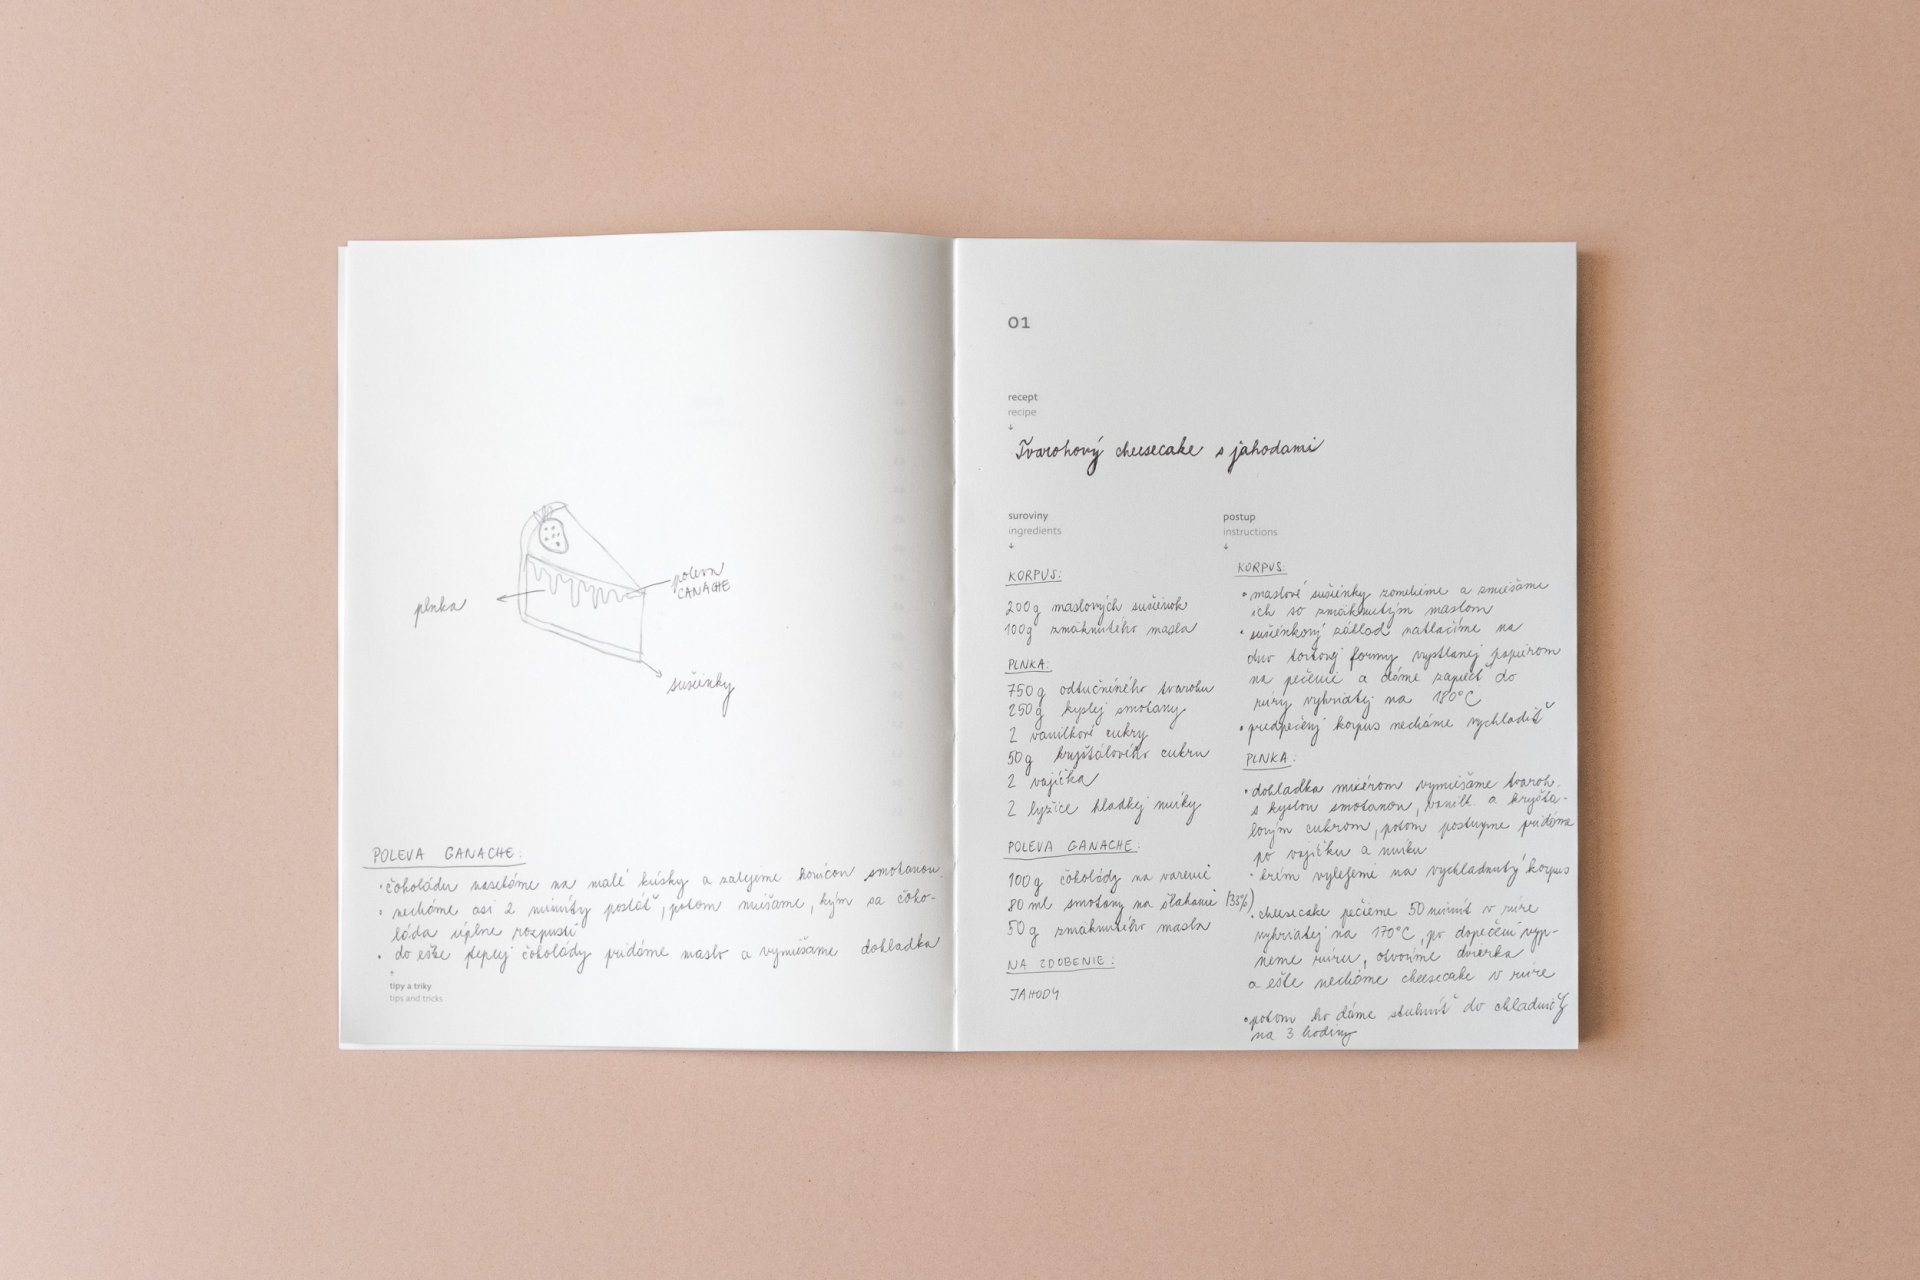 plnka
poleva
GANACHE
sušienky
POLEVA GANACHE:
• čokoládu nasekáme na malé kúsky a zalejeme horúcou smotanou.
• necháme asi 2 minúty postáť, potom miešame, kým sa čoko-
láda úplne rozpustí
• do ešte teplej čokolády pridáme maslo a vymiešame dohladka
tipy a triky
tips and tricks
01
recept
recipe
↓
Tvarohový cheesecake s jahodami
suroviny
ingredients
↓
KORPUS:
200g maslových sušienok
100g zmäknutého masla
PLNKA:
750g odtučněného tvarohu
250g kyslej smotany
2 vanilkové cukry
50g kryštálového cukru
2 vajíčka
2 lyžice hladkej múky
POLEVA GANACHE:
100g čokolády na varenie
80 ml smotany na šľahanie (35%)
50g zmäknutého masla
NA ZDOBENIE:
JAHODY
postup
instructions
↓
KORPUS:
• maslové sušienky zomelieme a zmiešame
ich so zmäknutým maslom
• sušienkový základ natlačíme na
dno tortovej formy vystlanej papierom
na pečenie a dáme zapiecť do
rúry vyhriatej na 180°C
• predpečený korpus necháme vychladiť
PLNKA:
• dohladka mixérom vymiešame tvaroh
s kyslou smotanou, vanilk. a kryštá-
lovým cukrom, potom postupne pridáme
po vajíčku a múku
• krém vylejeme na vychladnutý korpus
• cheesecake pečieme 50 minút v rúre
vyhriatej na 170°C, po dopečení vyp-
neme rúru, otvoríme dvierka
a ešte necháme cheesecake v rúre
• potom ho dáme stuhnúť do chladničky
na 3 hodiny